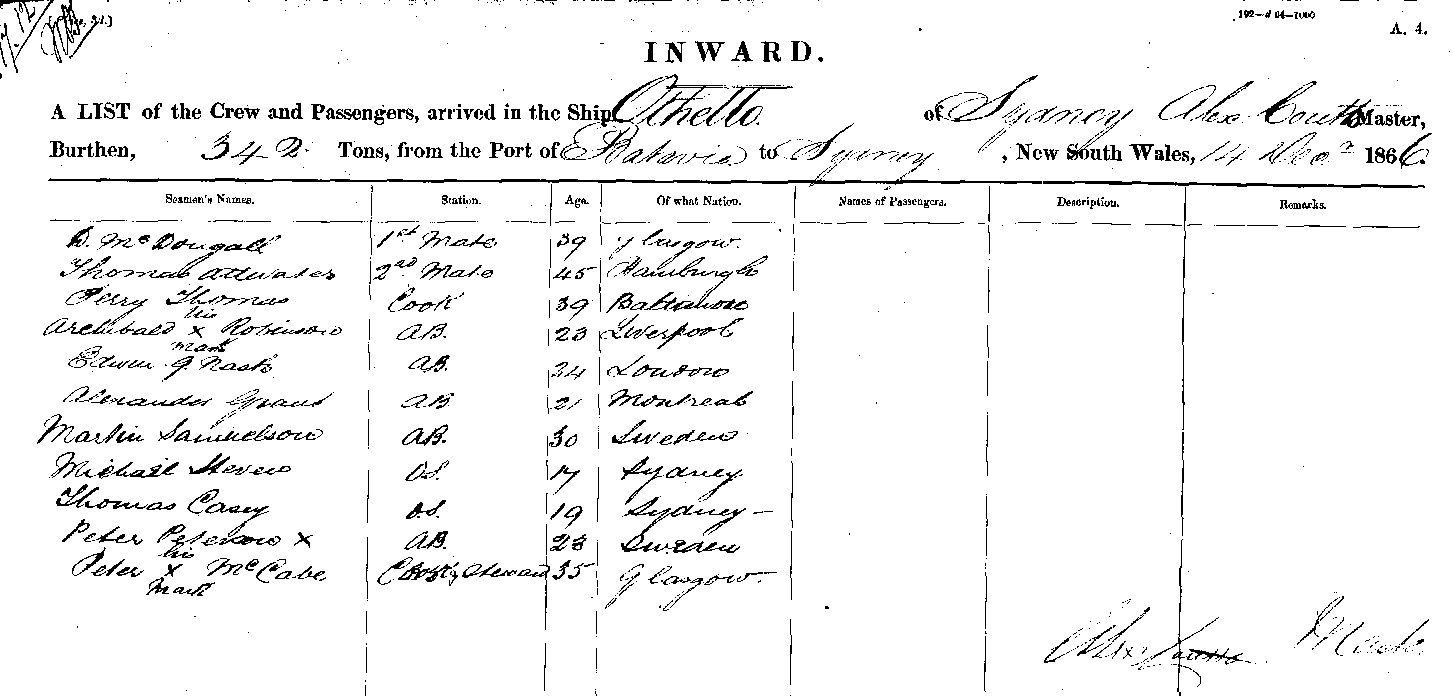 192—d 64—1000
A. 4.
INWARD.
A LIST of the Crew and Passengers, arrived in the Ship Othello of Sydney Alex Coutts Master,
Burthen, 342 Tons, from the Port of Batavia to Sydney, New South Wales, 14 Decr 1866.
Seamen's Names. Station. Age. Of what Nation. Names of Passengers. Description. Remarks.
D. McDougall 1st Mate 39 Glasgow.
Thomas Attwater 2nd Mate 45 Hamburgh
Perry Thomas Cook 39 Baltimore
his
Archibald x Robinson AB. 23 Liverpool
mark
Edwin G Nash AB. 24 London
Alexander Grant AB 21 Montreal
Martin Samuelson AB. 30 Sweden
Michael Steven O.S. 17 Sydney
Thomas Casey O.S. 19 Sydney —
Peter Peterson x AB. 23 Sweden
his
Peter x McCabe Cook & Steward 35 Glasgow.
Mark
Alex Coutts Master